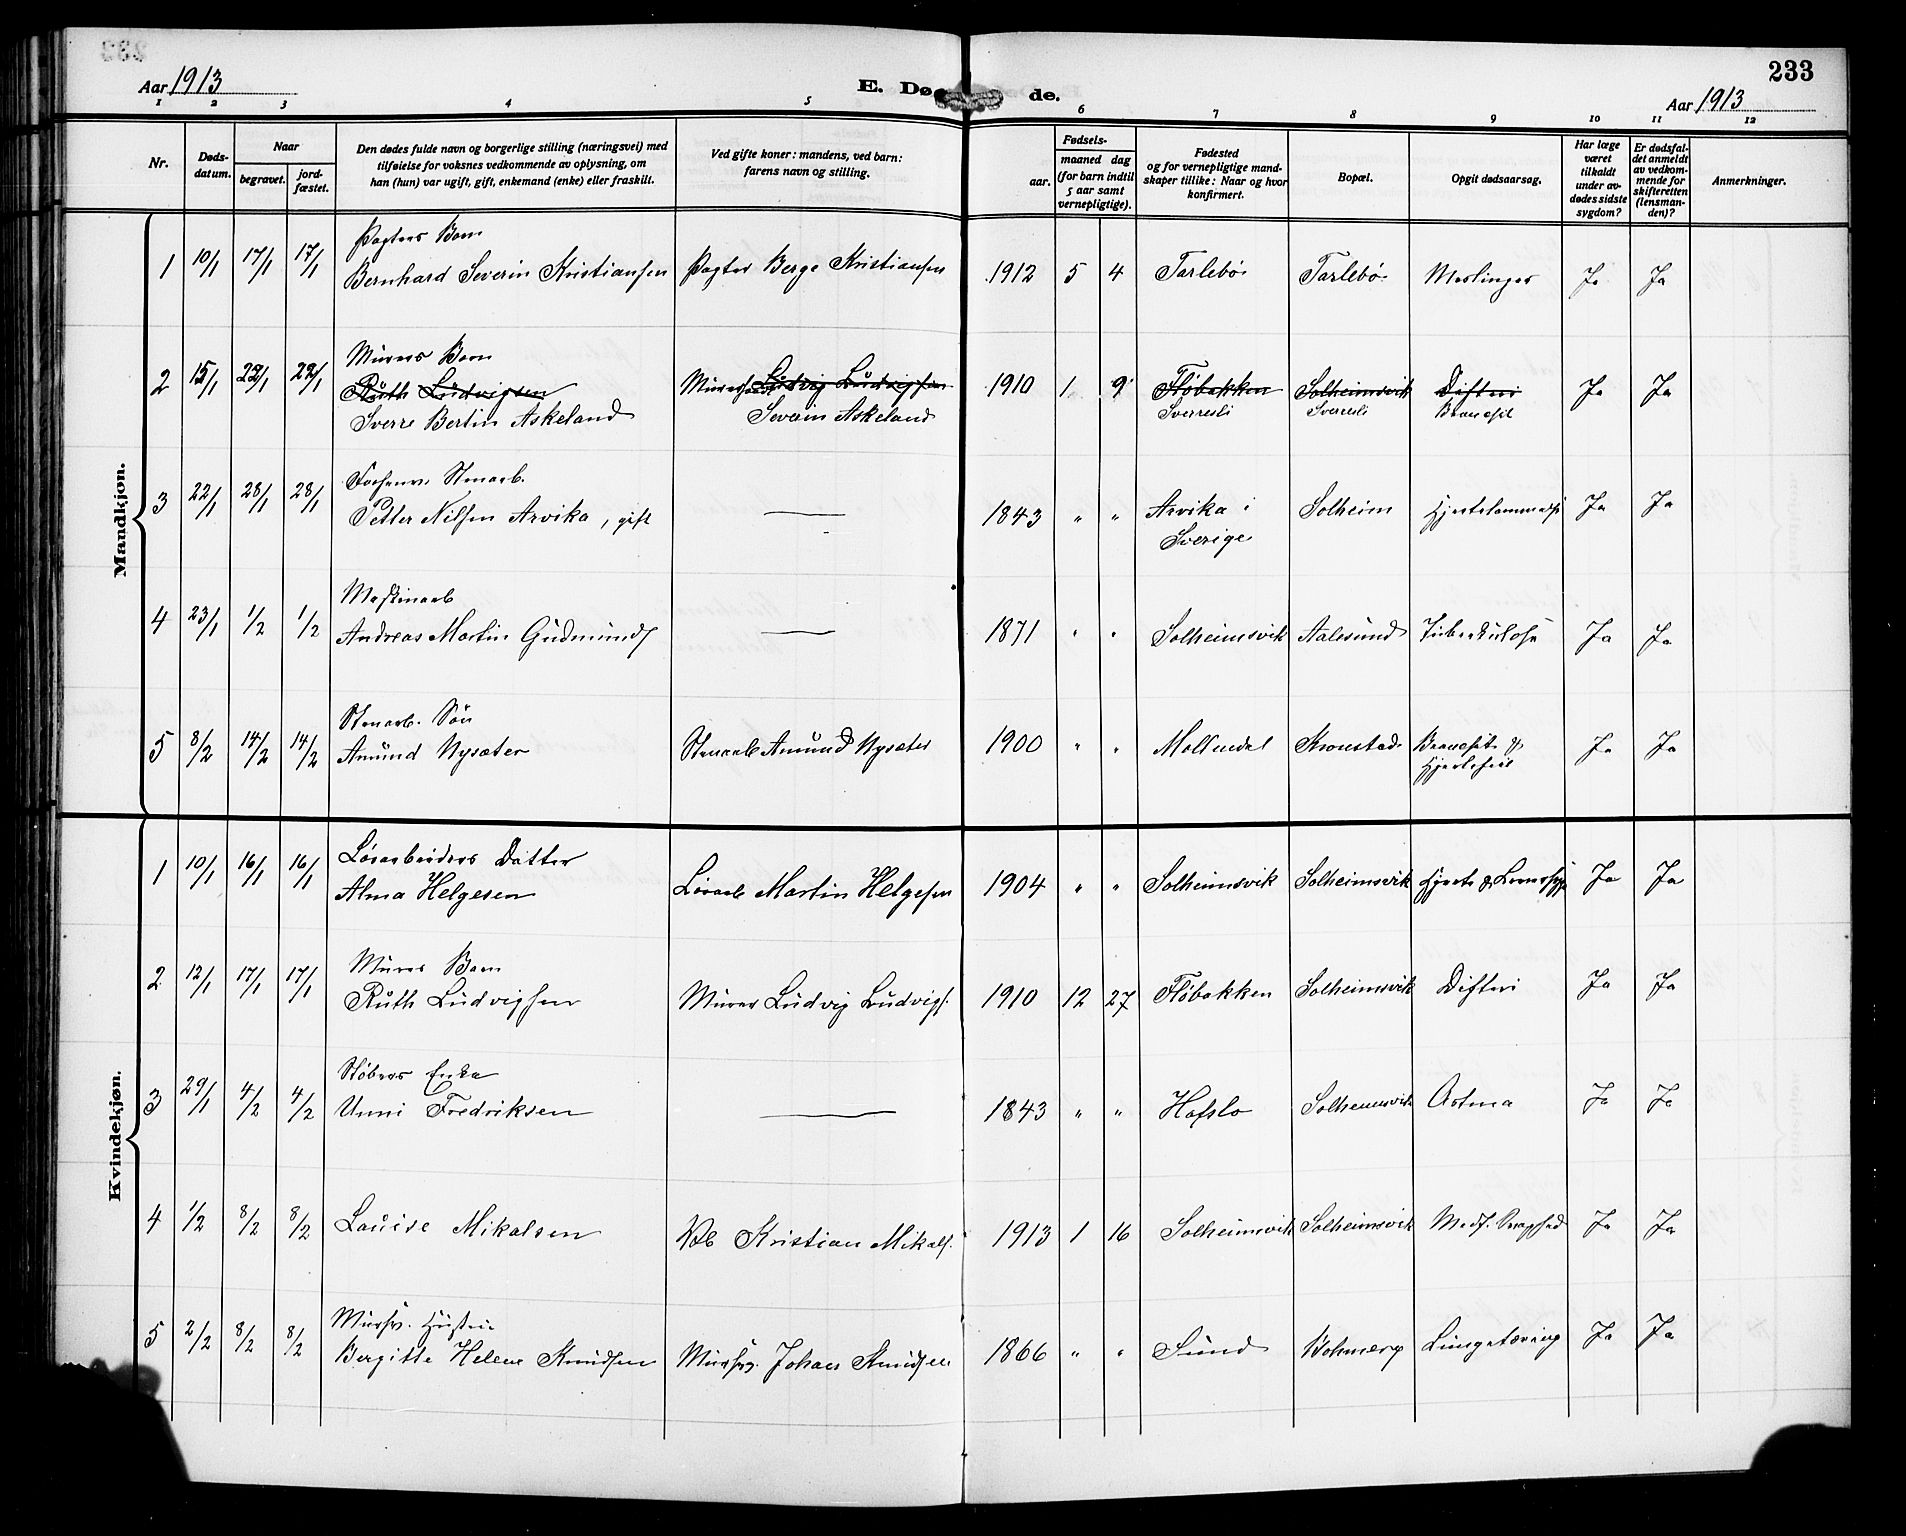 233
Aar 1913
E. Dø
de.
Aar 1913
1 2 3 4 5 6 7 8 9 10 11 12
Nr.
Døds-
datum.
Naar
begravet.
jord-
fæstet.
Den dødes fulde navn og borgerlige stilling (næringsvei) med
tilføielse for voksnes vedkommende av oplysning, om
han (hun) var ugift, gift, enkemand (enke) eller fraskilt.
Ved gifte koner: mandens, ved barn:
farens navn og stilling.
Fødsels-
aar.
maaned dag
(for barn indtil
5 aar samt
vernepligtige).
Fødested
og for vernepligtige mand-
skaper tillike: Naar og hvor
konfirmert.
Bopæl.
Opgit dødsaarsag.
Har læge
været
tilkaldt
under av-
dødes sidste
sygdom?
Er dødsfal-
det anmeldt
av vedkom-
mende for
skifteretten
(lensman-
den)?
Anmerkninger.
Mandkjøn.
Pagters Barn
1 10/1 17/1 17/1 Bernhard Severin Kristiansen Pagter Berge Kristiansen 1912 5 4 Tarlebø Tarlebø Meslinger Ja Ja
Murers Barn
2 15/1 22/1 22/1 Ruth Ludvigsen Ludvig Ludvigsen 1910 1 9 Fløbakken Solheimsvik Difteri Ja Ja
Sverre Bertin Askeland Severin Askeland Sverresli Sverresli
Stenarb.
3 22/1 28/1 28/1 Petter Nilsen Arvika, gift 1843 " " Arvika i Solheim Ja Ja
Sverige
Maskinarb
4 23/1 1/2 1/2 Andreas Martin Gudmunds 1871 " " Solheimsvik Aalesund Tuberkulose Ja Ja
Stenarb. Søn
5 8/2 14/2 14/2 Amund Nysæter Stenarb Amund Nysæter 1900 " " Møllendal Kronstad Ja Ja
Hjertefeil
Kvindekjøn.
Løsarbeiders Datter
1 10/1 16/1 16/1 Alma Helgesen Løsarb Martin Helgesen 1904 " " Solheimsvik Solheimsvik Ja Ja
Murers Barn
2 12/1 17/1 17/1 Ruth Ludvigsen Murer Ludvig Ludvigs. 1910 12 27 Fløbakken Solheimsvik Difteri Ja Ja
Støbers Enke
3 29/1 4/2 4/2 Unni Fredriksen 1843 " " Hafslo Solheimsvik Astma Ja Ja
4 1/2 8/2 8/2 Louise Mikalsen Kristian Mikals. 1913 1 16 Solheimsvik Solheimsvik Medf. Svaghed Ja Ja
Mursv. Hustru
5 2/2 8/2 8/2 Bergitte Helene Knudsen Mursv. Johan Knudsen 1866 " " Sund Lungetæring Ja Ja